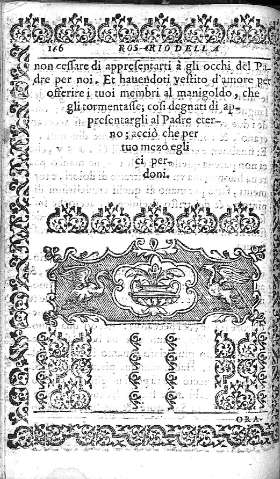 166 ROSARIO DELLA
non cessare di appresentarti à gli occhi del Pa-
dre per noi. Et havendoti vestito d'amore per
offerire i tuoi membri al manigoldo, che
gli tormentasse; cosi degnati di ap-
presentargli al Padre eter-
no; acciò che per
tuo mezo egli
ci per-
doni.
ORA-